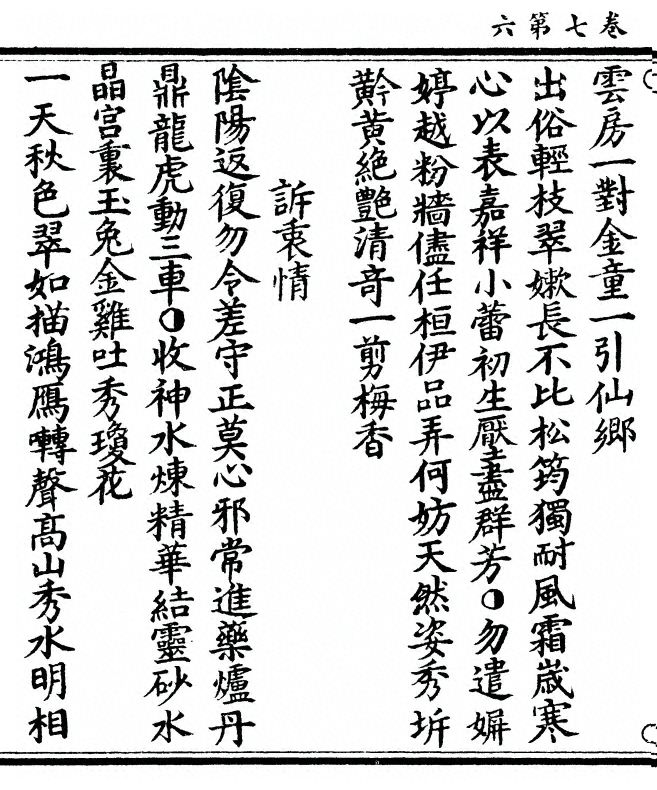 卷七第六
雲房一對金童一引仙鄉
出俗輕枝翠嫰長不比松筠獨耐風霜嵗寒
心以表嘉祥小蕾初生壓盡群芳◑勿遣娦
婷越粉牆儘任桓伊品弄何妨天然姿秀坼
黅黄絶艷清竒一剪梅香
訴衷情
陰陽返復勿令差守正莫心邪常進藥爐丹
鼎龍虎動三車◑收神水煉精華結靈砂水
晶宫裏玉兔金雞吐秀瓊花
一天秋色翠如描鴻鴈囀聲髙山秀水明相